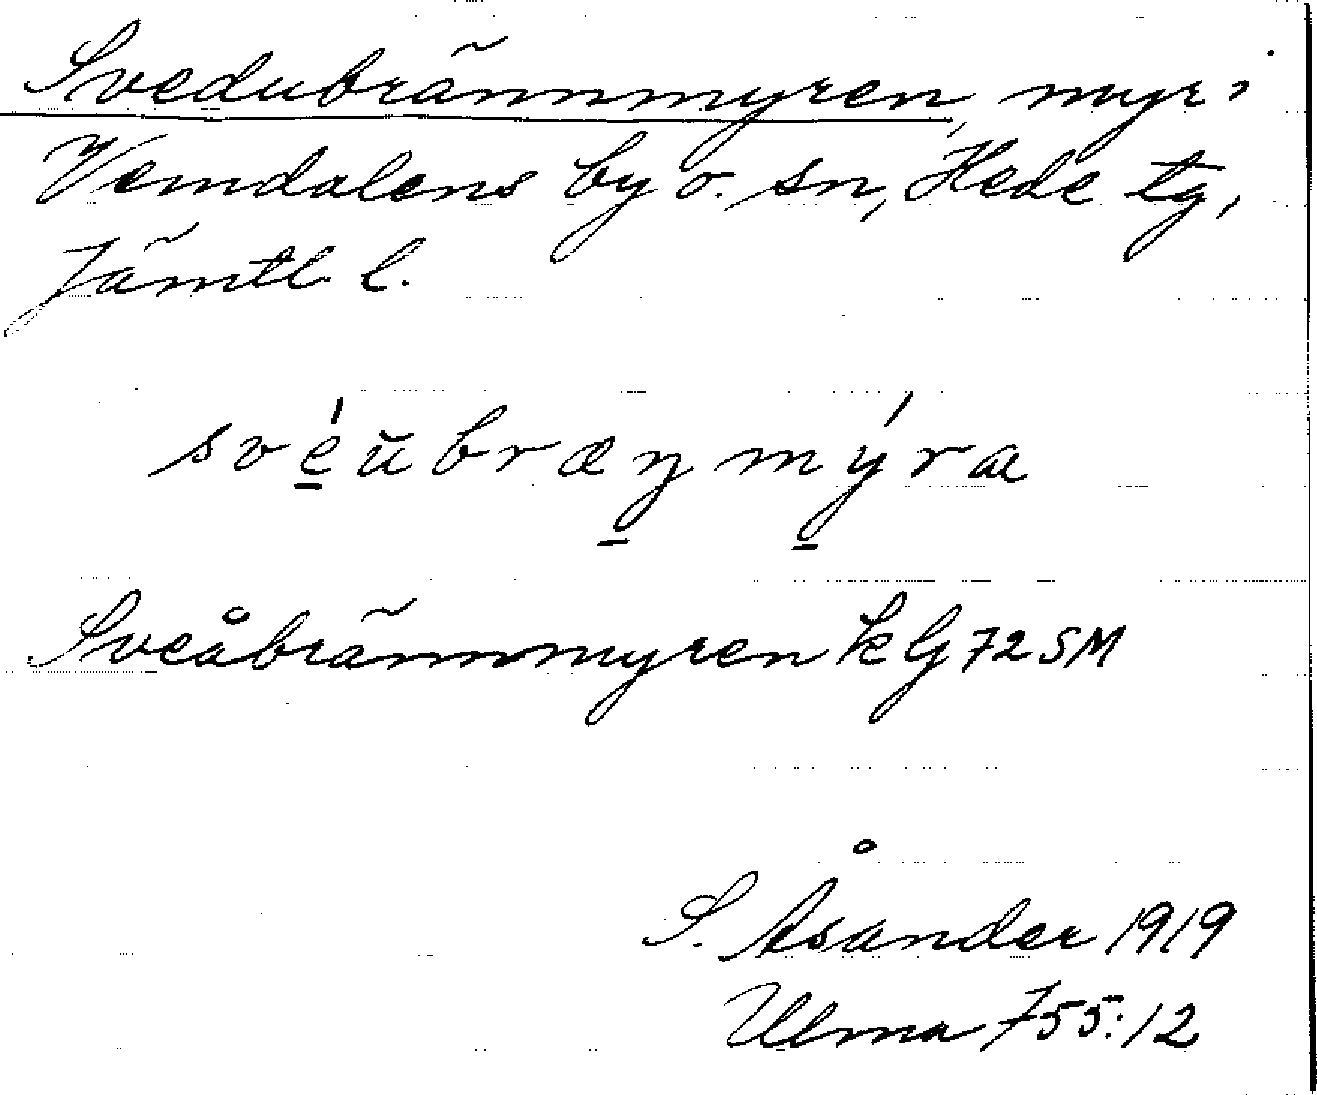 Svedubrännmyren, myr i
Vemdalens by o. sn, Hede tg,
Jämtl. l.
svéŭbræŋmýra
Sveåbrännmyren kG 72 SM
S. Åsander 1919
Ulma 755:12